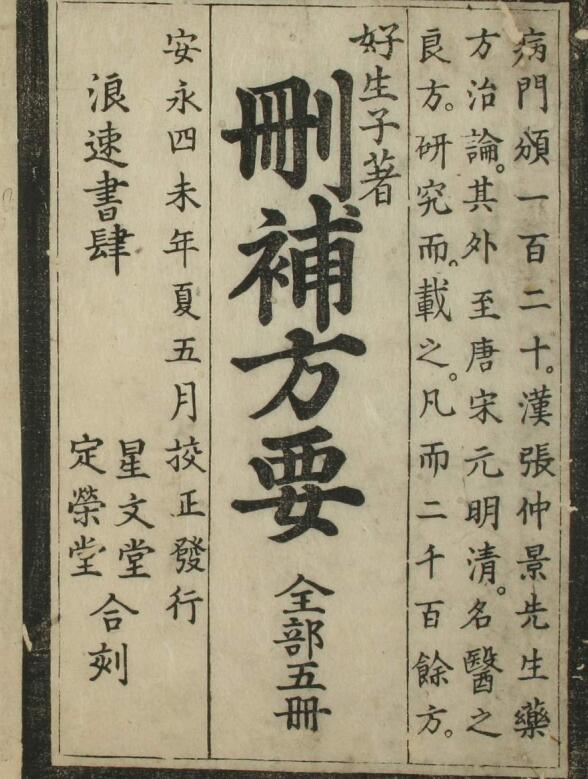 病門頒一百二十。漢張仲景先生藥
方治論。其外至唐宋元明清。名醫之
良方。研究而。載之。凡而二千百餘方。
好生子著
刪補方要
全部五冊
安永四未年夏五月挍正發行
浪速書肆
星文堂
定榮堂
合刻